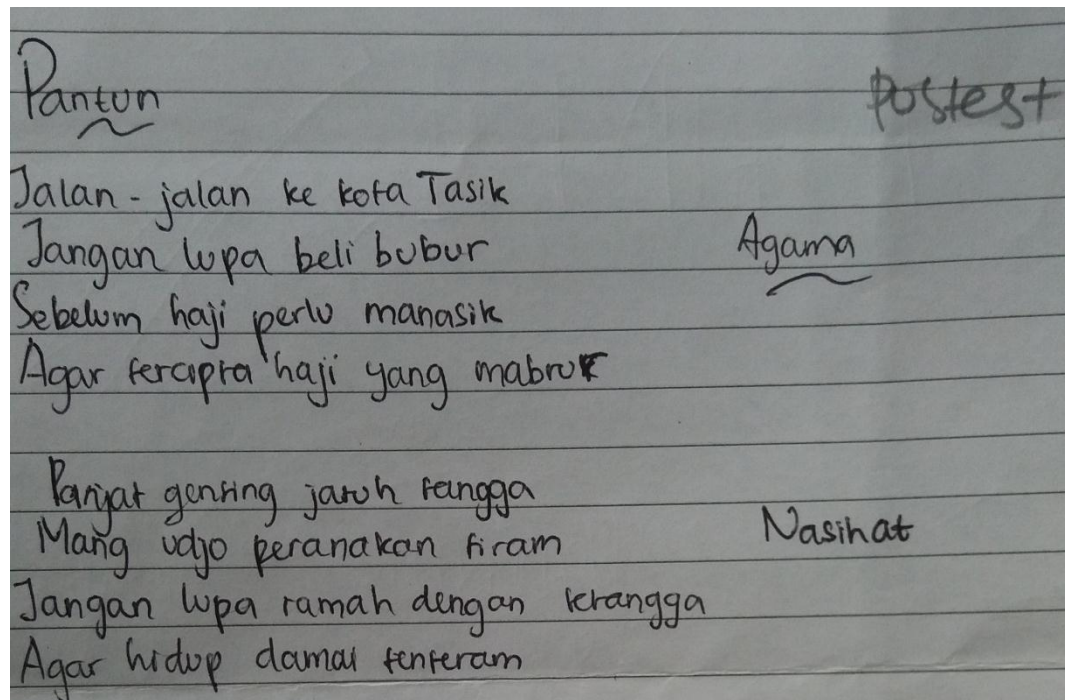 Pantun
Postest
Jalan - jalan ke kota Tasik
Jangan lupa beli bubur
Agama
Sebelum haji perlu manasik
Agar tercipta haji yang mabrur
Panjat genting jatuh tangga
Mang udjo peranakan tiram
Nasihat
Jangan lupa ramah dengan tetangga
Agar hidup damai tenteram